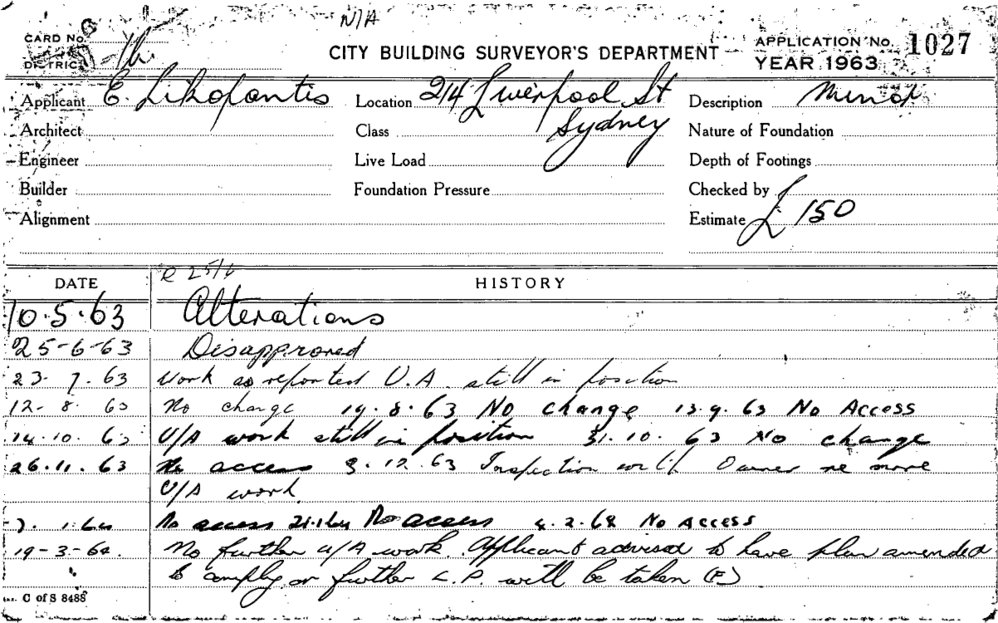 N/A
CARD No.
DISTRICT
CITY BUILDING SURVEYOR'S DEPARTMENT
APPLICATION No. 1027
YEAR 1963
Applicant E. Likofantis Location 214 Liverpool St Description
Sydney
Architect Class Nature of Foundation
Engineer Live Load Depth of Footings
Builder Foundation Pressure Checked by
Alignment Estimate £ 150
DATE HISTORY
10.5.63 Alterations
25-6-63 Disapproved
23.7.63 Work as reported U.A. still in position
12-8.63 No change 19.8.63 No change 13.9.63 No Access
14.10.63 U/A work still in position 31.10.63 No change
26.11.63 No access 3.12.63 Inspection with Owner re more
U/A work
7.1.64 No access 21.1.64 No access 4.2.64 No Access
19-3-64. No further U/A work. Applicant advised to have plan amended
to comply or further L.P. will be taken (F)
C of S 8488